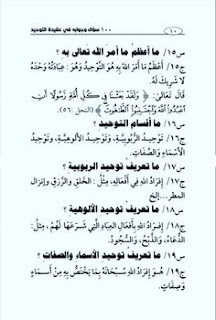 ١٠
١٠٠ سؤال وجوابه في عقيدة التوحيد
س١٥/ ما أعظم ما أمر الله تعالى به ؟
ج١٥/ أعظم ما أمر الله به هو التوحيد وهو : عبادته وحده
لا شريك له
قال تعالى: ﴿ وَلَقَدْ بَعَثْنَا فِي كُلِّ أُمَّةٍ رَسُولًا أَنِ
اعْبُدُوا اللَّهَ وَاجْتَنِبُوا الطَّاغُوتَ ﴾ (النحل :٥٦).
س١٦/ ما أقسام التوحيد ؟
ج١٦/ توحيد الربوبية، وتوحيد الألوهية، وتوحيد
الأسماء والصفات.
س١٧/ ما تعريف توحيد الربوبية ؟
ج١٧/ إفراد الله في أفعاله، مثل : الخلق والرزق وإنزال
المطر...إلخ
س١٨/ ما تعريف توحيد الألوهية ؟
ج١٨/ إفراد الله بأفعال العباد التي شرعها لهم، مثل:
الدعاء، والذبح، والسجود.
س١٩/ ما تعريف توحيد الأسماء والصفات ؟
ج١٩/ هو إفراد الله سبحانه بما يختص به من أسماء
وصفات.